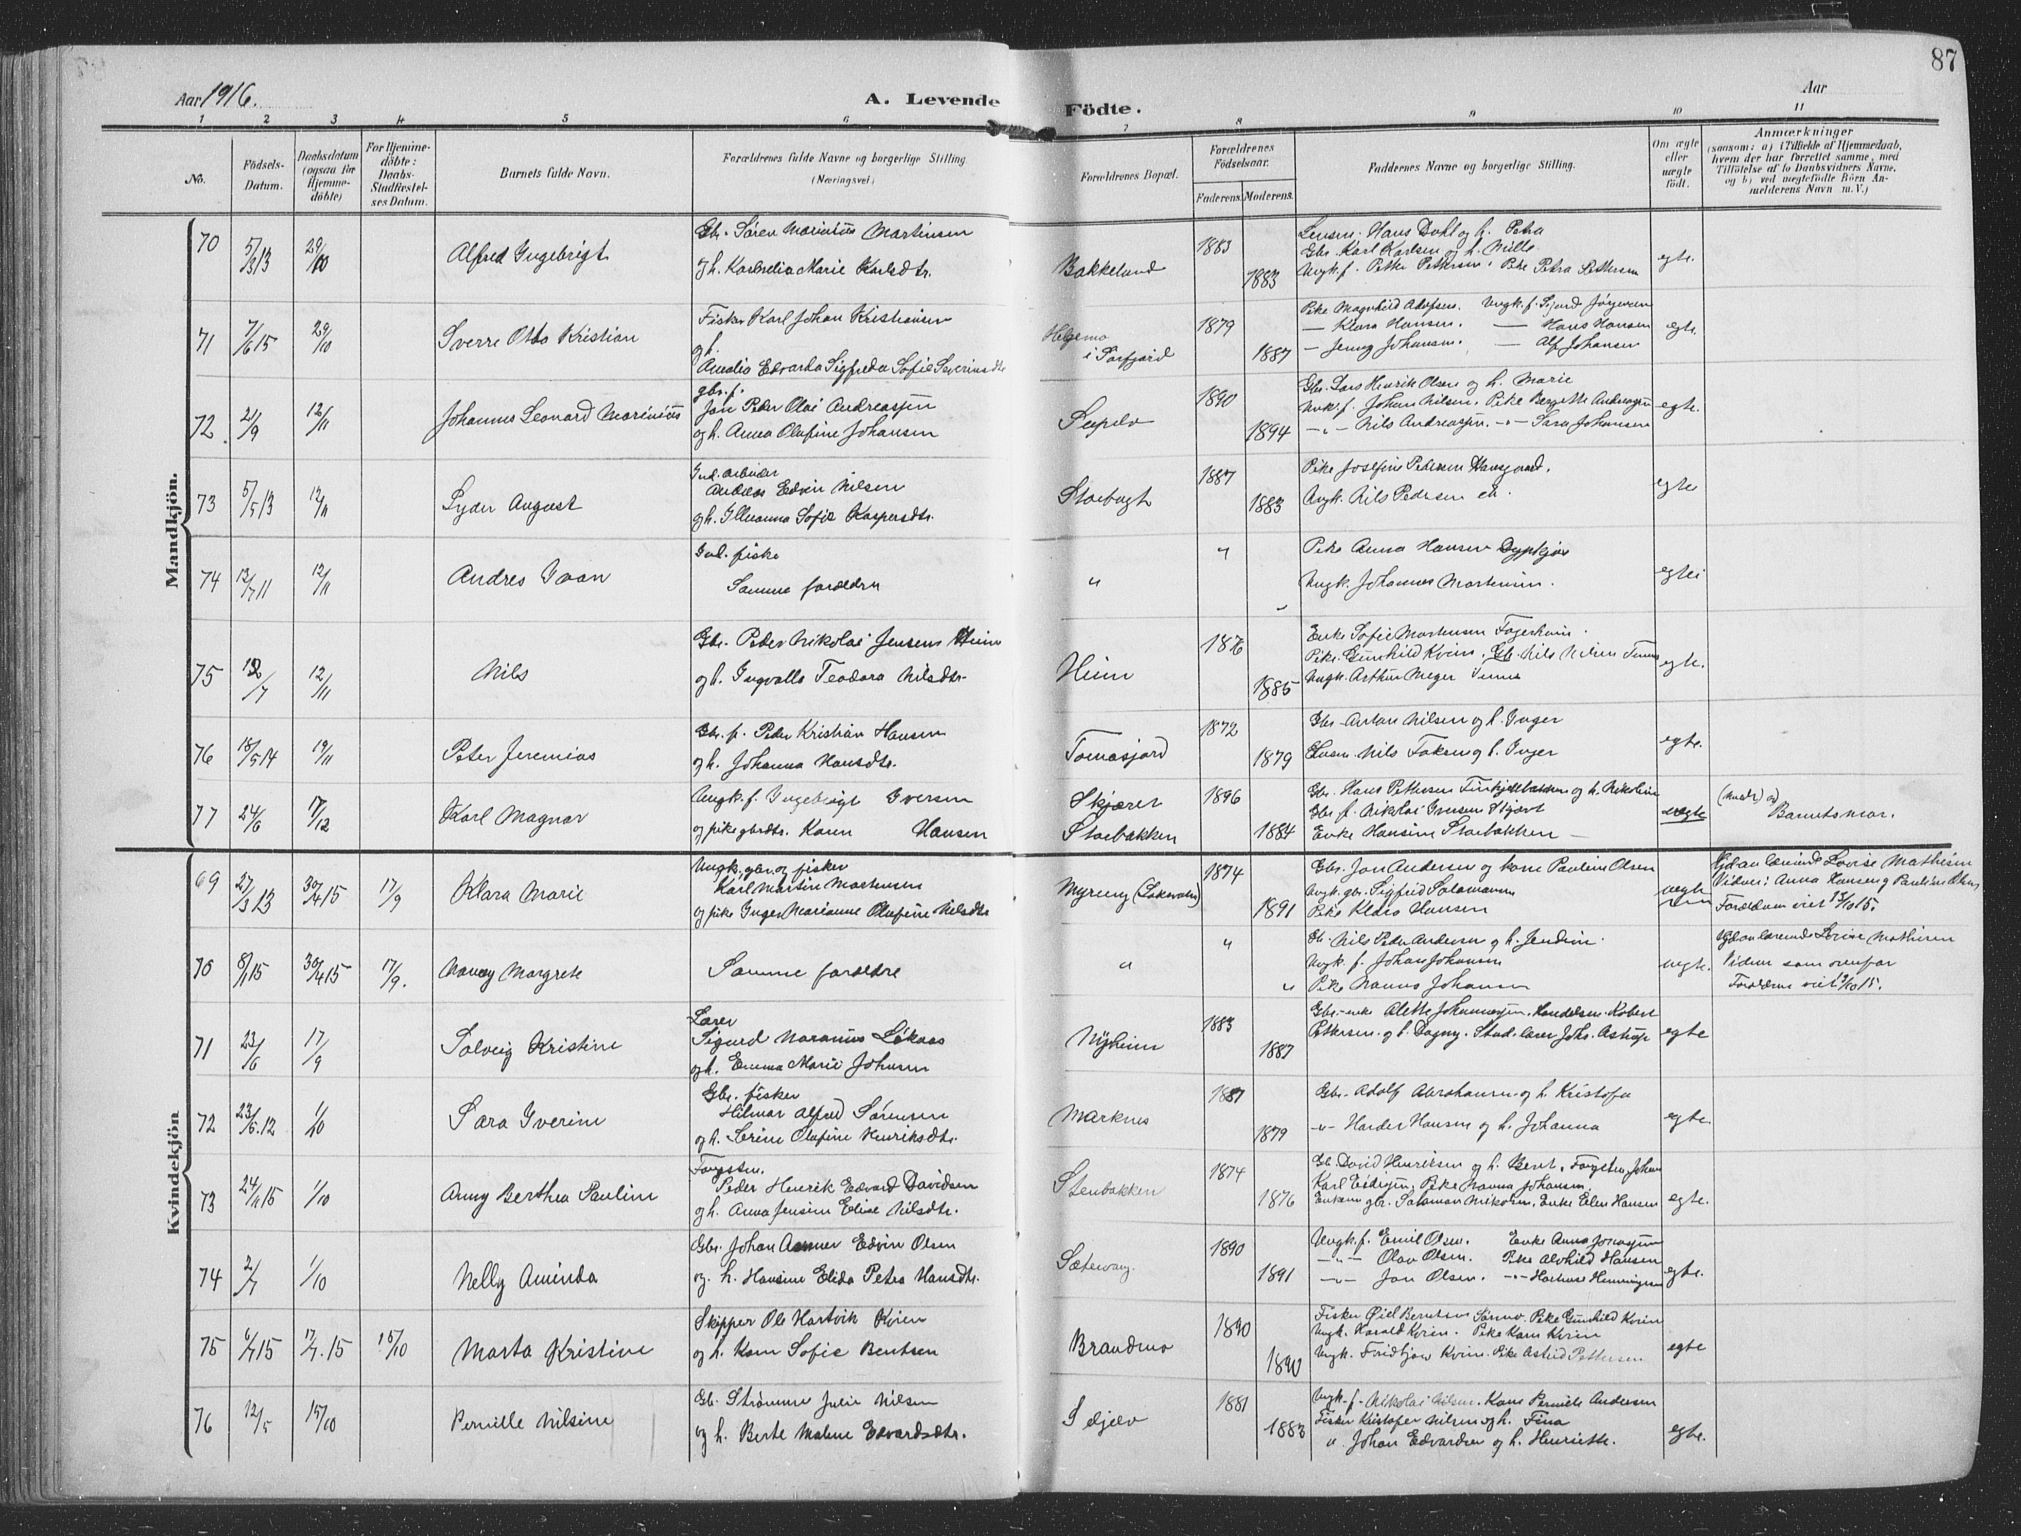 87
Aar 1916.
A. Levende Födte.
Aar
1 2 3 4 5 6 7 8 9 10 11
No.
Födsels-Datum.
Daabsdatum (ogsaa for Hjemmedöbte)
For Hjemmedöbte: Daabs-Stadfestelses Datum.
Barnets fulde Navn.
Forældrenes fulde Navne og borgerlige Stilling (Næringsvei)
Forældrenes Bopæl.
Forældrenes Födselsaar.
Faderens. Moderens.
Faddernes Navne og borgerlige Stilling.
Om ægte eller uægte födt.
Anmærkninger
(saasom: a) i Tilfælde af Hjemmedaab, hvem der har forrettet samme, med Tilföielse af to Daabsvidners Navne, og b) ved uægtefödte Börn Anmelderens Navn m. V.)
Mandkjön.
70 5/3 13 29/10 Alfred Ingebrigt
Gbr. Søren Marinius Martinsen
og h. Kornelia Marie Karlsdtr.
Bakkeland 1883 1883
Lensm. Hans Dahl og h. Petra
Gbr. Karl Karlsen og h. Mille
Ungk. f. Petter Pettersen. Pike Petra Pettersen
egte.
71 7/6 15 29/10 Sverre Otto Kristian
Fisker Karl Johan Kristiansen
og h.
Amalia Edvarda Sigfreda Sofie Severinsdtr
Helgemo
i Sørfjord 1879 1887
Pike Magnhild Adolfsen. Ungk. f. Sigurd Jørgensen
— Klara Hansen. — Hans Hansen
— Jenny Johansen. — Alf Johansen
egte.
72. 21/9 12/11 Johannes Leonard Marinius
gbr. f.
Jon Peder Olai Andreassen
og h. Anna Olufine Johansen
1890 1894
Gbr. Lars Henrik Olsen og h. Marie
Ungk. f. Johan Nilsen. Pike Bergitte Andreassen
—"— Nils Andreassen. —"— Sara Johansen
egte.
73 5/5 13 12/11 Lyder August
Ind. arbeider
Andreas Edvin Nilsen
og h. Illuanna Sofie Kaspersdtr.
Storbugt 1887 1883
Pike Josefine Pedersen
Ungk. Nils Pedersen
egte
74 12/7 11 12/11 Andres Ivan
Ind. fisker
Samme forældre
" " "
Pike Anna Hansen
Ungk. Johannes Mortensen.
egte
75 12/7 12/11 Nils
Gbr. Peder Nikolai Jensen Heim
og h. Ingvalla Teodora Nilsdtr.
Heim 1876 1885
Enke Sofie Martinsen Fagerheim.
Pike Gunhild Kvien. Gbr. Nils Nilsen
Ungk. Arthur Meyer
egte.
76 18/5 14 19/11 Peter Jeremias
Gbr. f. Peder Kristian Hansen
og h. Johanna Hansdtr.
Tomasjord 1872 1879
Gbr. Anton Nilsen og h. Inger
Nils og h. Inger
egte.
77 24/6 17/12 Karl Magnar
Ungk. f. Ingebrigt Iversen
og pike gbrdtr. Karen Hansen
Skjæret
Storbakken 1896 1884
Gbr. Hans Pettersen og h. Nikoline
Gbr. f. Nikolai
Enke Hansine Storbakken —
uegte
Barnets mor.
Kvindekjön
69 27/3 13 30/4 15 17/9 Klara Marie
Ungk. gbr. og fisker
Karl Martin Mortensen
og pike Inger Marianne Olufine Nilsdtr
Myreng 1874 1891
Gbr. Jon Andersen og kone Pauline Olsen
Ungk. gbr. Sigfrid Salamonsen
Pike Klara Hansen
uegte
Lovise Mathisen
Vidner: Anna Hansen og Pauline Olsen
Forældrene viet 15/10 15.
70 8/1 15 30/4 15 17/9. Nancy Margrete
Samme forældre
" " "
Gbr. Nils Peder Andersen og h. Jendine.
Ungk. f. Johan Johansen
Pike Nanna Johansen
uegte.
Lovise Mathisen
Vidner som ovenfor
Forældrene viet 15/10 15.
71 23/6 17/9 Solveig Kristine
Lærer
Sigurd Løkaas
og h. Emma Marie Johansen
Nyheim 1883 1887
Gbr.-enke Alette Johannessen. Handelsm. Robert
Pettersen og h. Dagny. Stud. lærer Johs. Astrup
egte
72 23/6.12 1/10 Sara Iverine
Gbr. fisker
Hilmar Alfred Sørensen
og h. Serine Olufine Henriksdtr.
Marknes 1887 1879
Gbr. Adolf Abrahamsen og h. Kristofa
—"— Harder Hansen og h. Johanna
egte.
73 24/11 15 1/10 Anny Berthea Pauline
Peder Henrik Edvard Davidsen
og h. Anna Jensine Elise Nilsdtr.
Stenbakken 1874 1876
Gbr. David Henriksen og h. Beret. Johan
Karl Pike Nanna Johansen.
Enkem. gbr. Salamon Nikolaisen. Enke Elen Hansen
egte.
74 2/7 1/10 Nelly Aminda
Gbr. Johan Edvin Olsen
og h. Hansine Elida Petra Hansdtr.
Sætervang. 1890 1891
Ungk. f. Emil Olsen. Enke Anna Jonassen
—"— Olav Olsen. Pike Alvhild Hansen
—"— Jon Olsen. —"— Henningsen
egte.
75 6/7 15 17/7. 15 15/10 Marta Kristine
Skipper Ole Hartvik Kvien
og h. Karen Sofie Bentsen
Brandmo 1890 1890
Fisker Berntsen. Pike Gunhild Kvien
Ungk. Harald Kvien. Pike Karen Kvien
Ungk. Fridtjov Kvien. Pike Astrid Pettersen
egte
76 12/5 15/10 Pernille Nilsine
Gbr. Strømme Julin Nilsen
og h. Berte Malene Edvardsdtr.
1881 1883
Ungk. f. Nikolai Nilsen. Kone Pernille Andersen
Fisker Kristofer Nilsen og h. Fina
" Johan Edvardsen og h. Henriette.
egte.